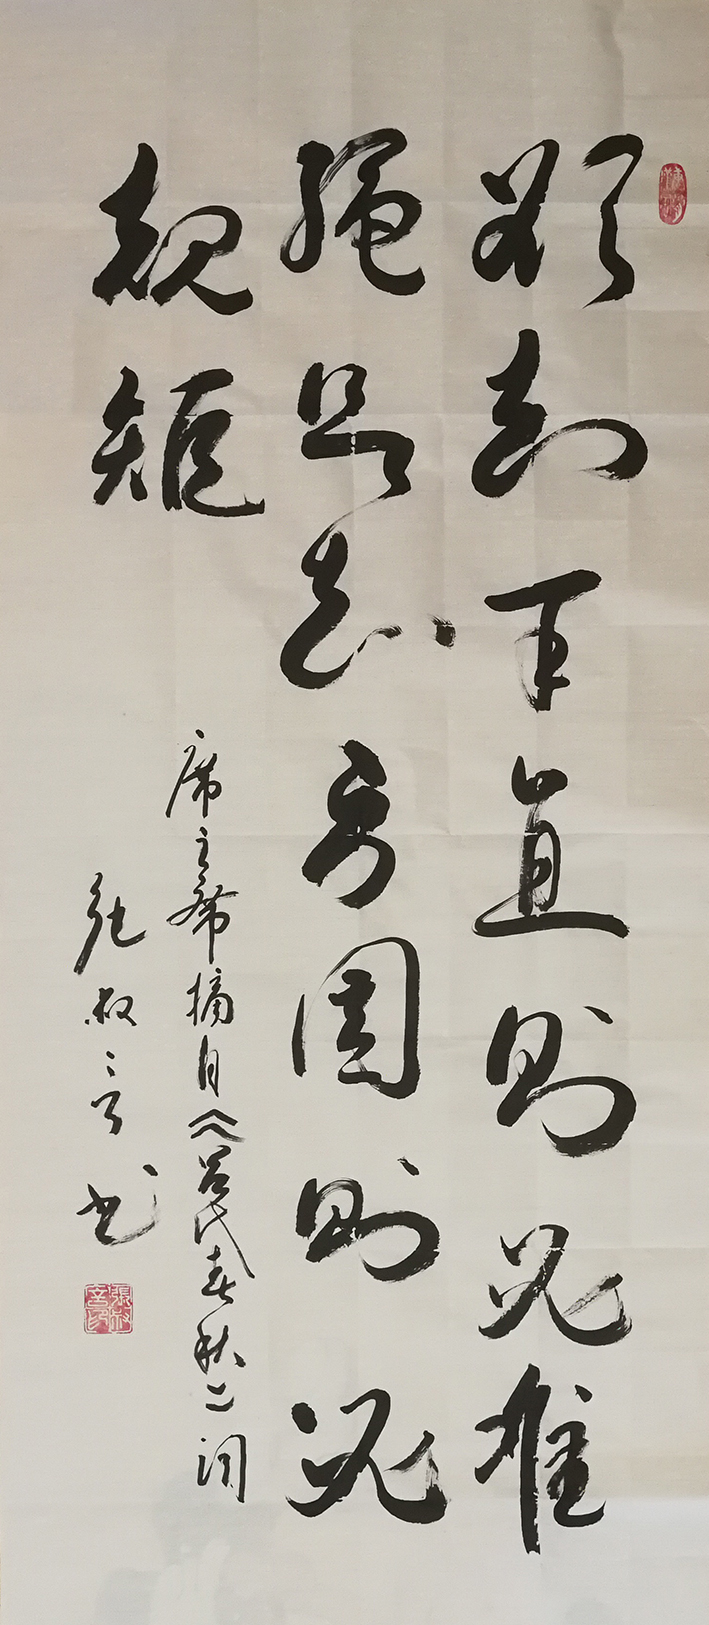 欲知平直则必准
绳欲知方圆则必
规矩
席主席摘自《吕氏春秋》词
张叔言书
張叔言印